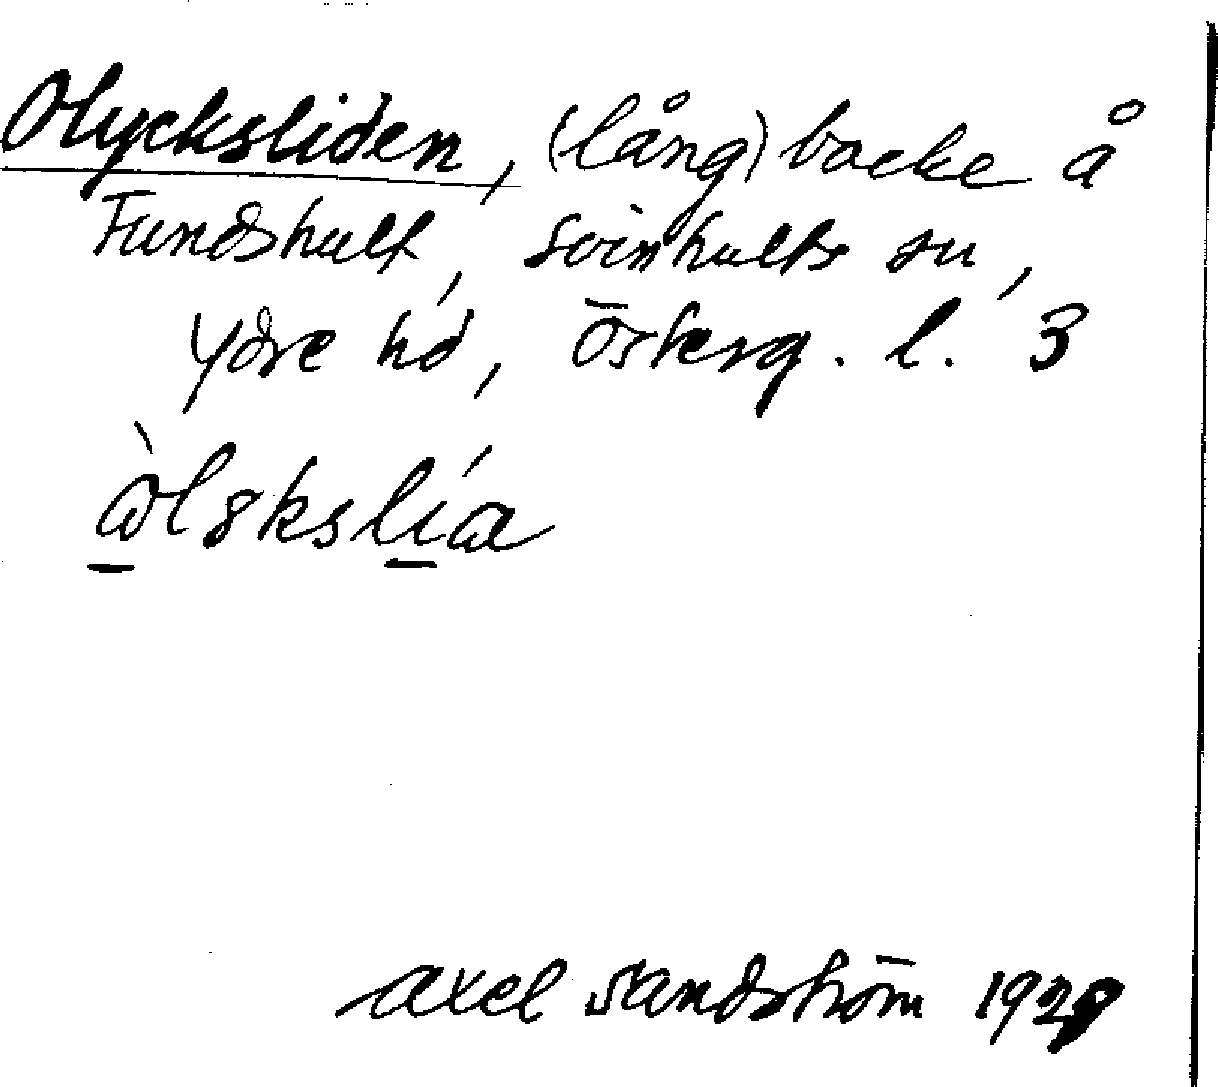 Olycksliden, (lång) backe å
Fundshult, Svinhults sn,
Ydre hd, Österg. l. 3
Axel Sandström